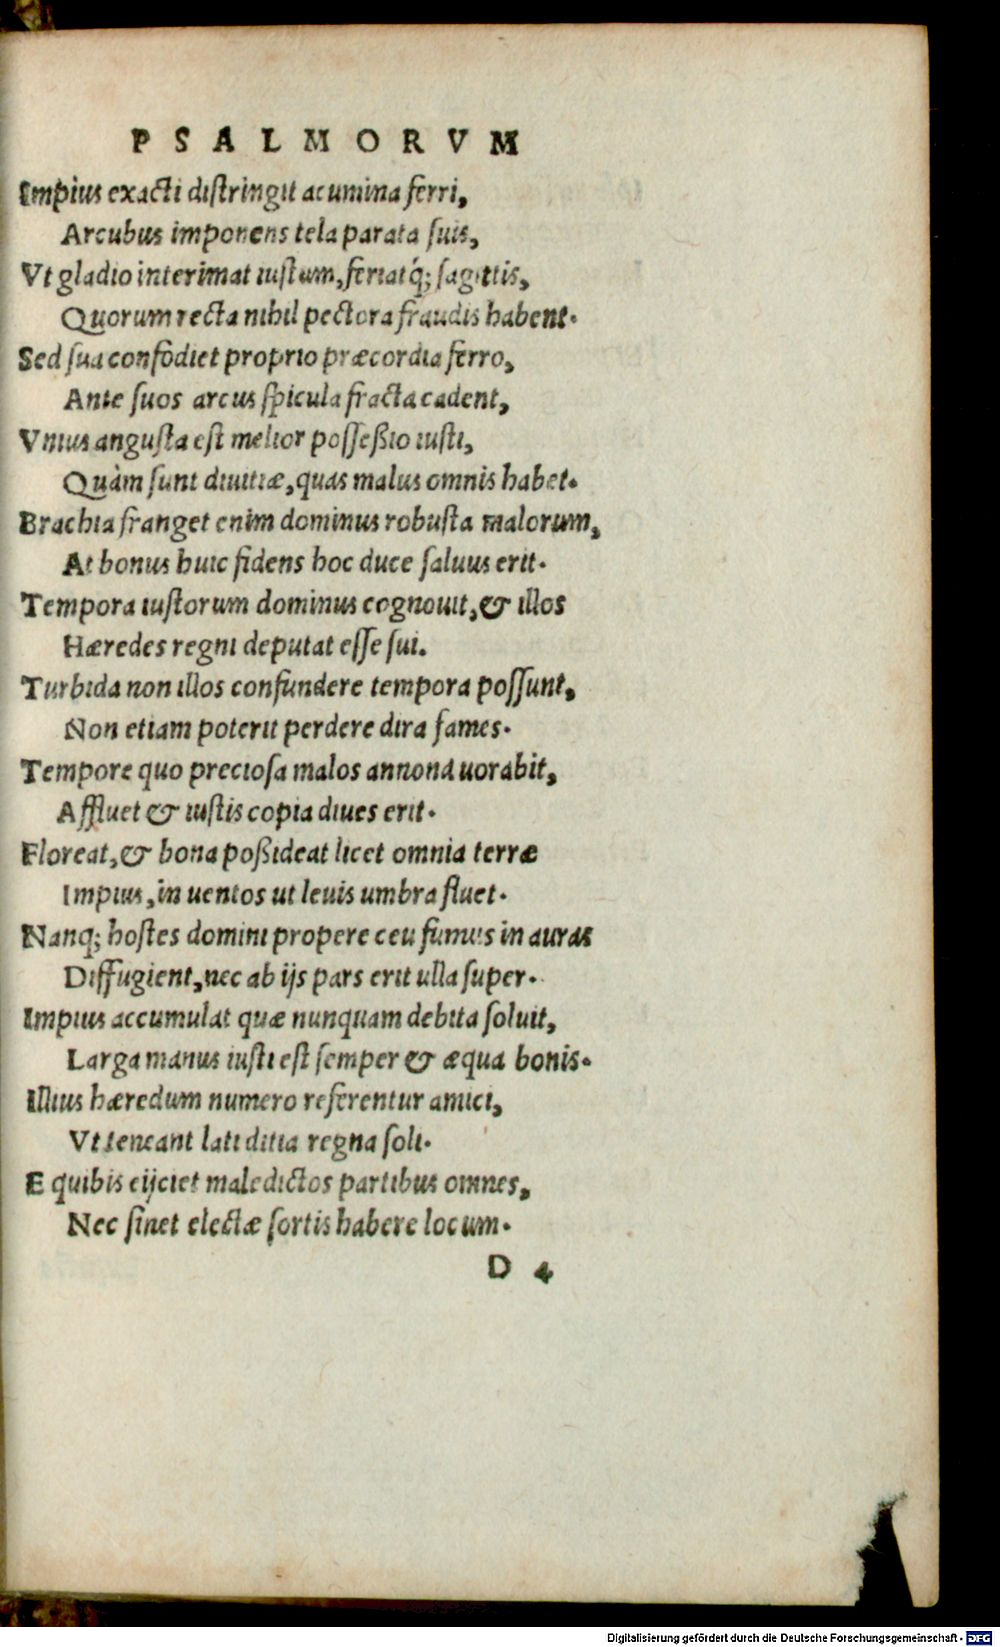 PSALMORVM
Impius exacti distringit acumina ferri,
Arcubus imponens tela parata suis,
Vt gladio interimat iustum, feriatq́; sagittis,
Quorum recta nihil pectora fraudis habent.
Sed sua confodiet proprio præcordia ferro,
Ante suos arcus spicula fracta cadent,
Vnius angusta est melior possessio iusti,
Quàm sunt diuitiæ, quas malus omnis habet.
Brachia franget enim dominus robusta malorum,
At bonus huic fidens hoc duce saluus erit.
Tempora iustorum dominus cognouit, & illos
Hæredes regni deputat esse sui.
Turbida non illos confundere tempora possunt,
Non etiam poterit perdere dira fames.
Tempore quo preciosa malos annona uorabit,
Affluet & iustis copia diues erit.
Floreat, & bona possideat licet omnia terræ
Impius, in uentos ut leuis umbra fluet.
Nanq; hostes domini propere ceu fumus in auras
Diffugient, nec ab ijs pars erit ulla super.
Impius accumulat quæ nunquam debita soluit,
Larga manus iusti est semper & æqua bonis.
Illius hæredum numero referentur amici,
Vt teneant lati ditia regna soli.
E quibis eijciet maledictos partibus omnes,
Nec sinet electæ sortis habere locum.
D 4
Digitalisierung gefördert durch die Deutsche Forschungsgemeinschaft - DFG